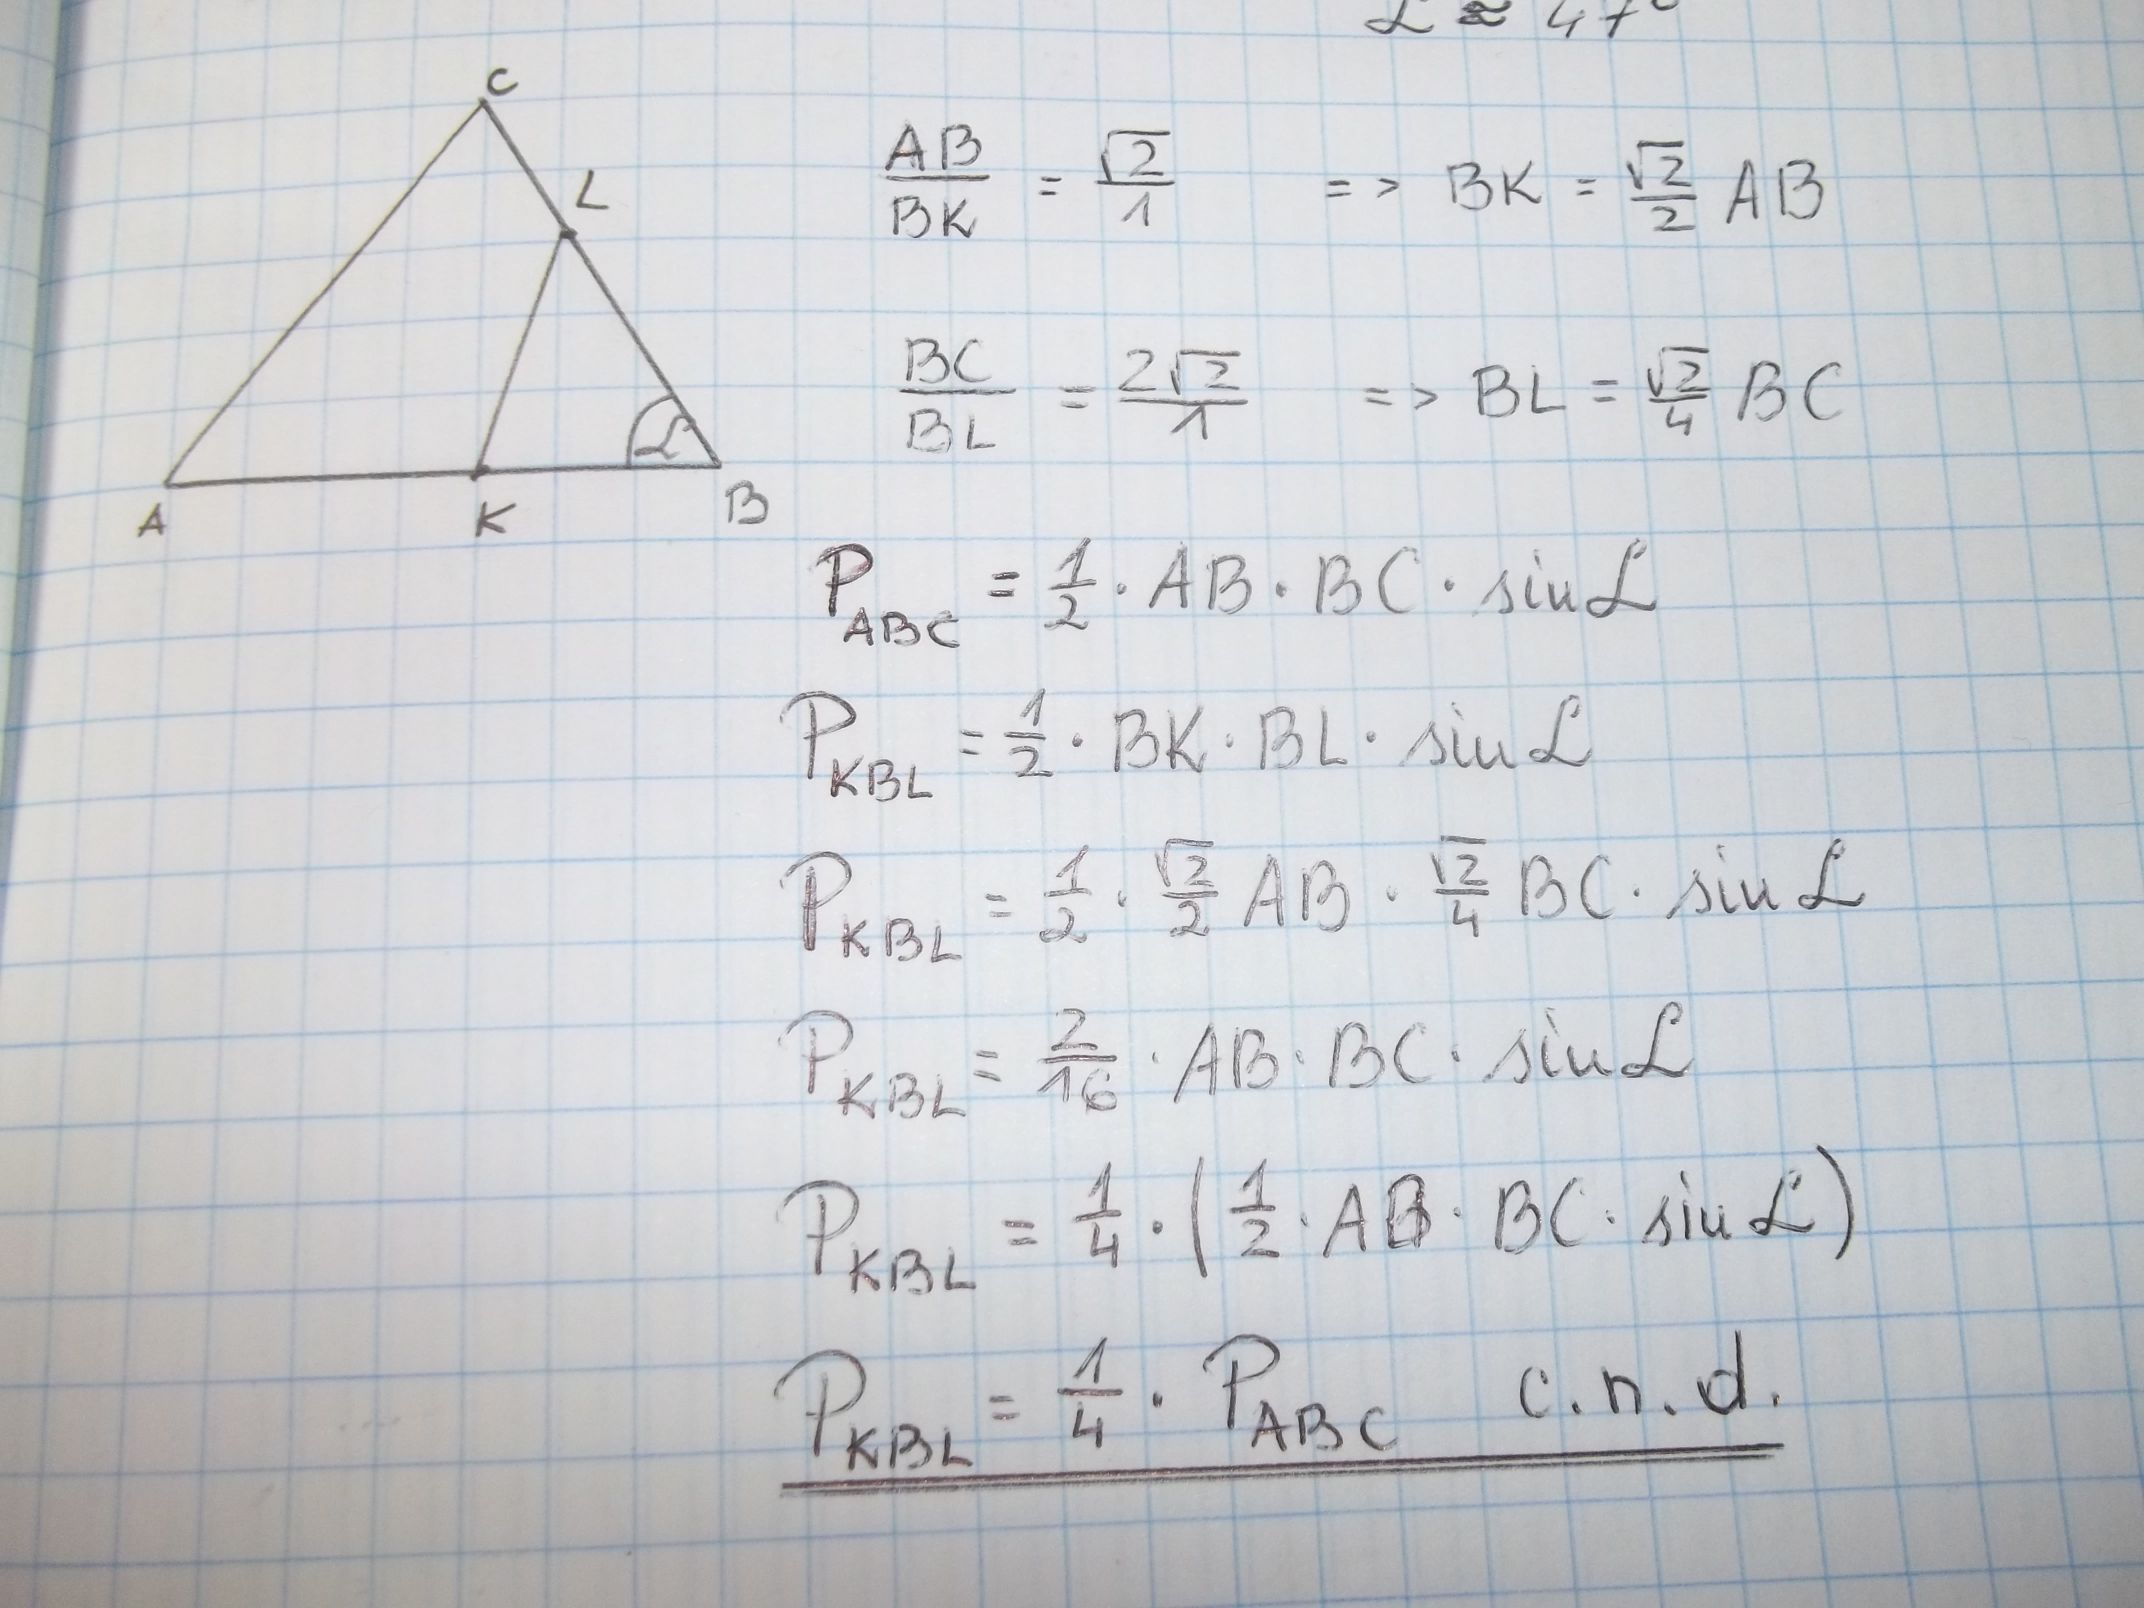 α ≈ 47°
C
L
α
A K B
AB/BK = √2/1 => BK = √2/2 AB
BC/BL = 2√2/1 => BL = √2/4 BC
P_ABC = 1/2 · AB · BC · sin α
P_KBL = 1/2 · BK · BL · sin α
P_KBL = 1/2 · √2/2 AB · √2/4 BC · sin α
P_KBL = 2/16 · AB · BC · sin α
P_KBL = 1/4 · (1/2 · AB · BC · sin α)
P_KBL = 1/4 · P_ABC c.n.d.